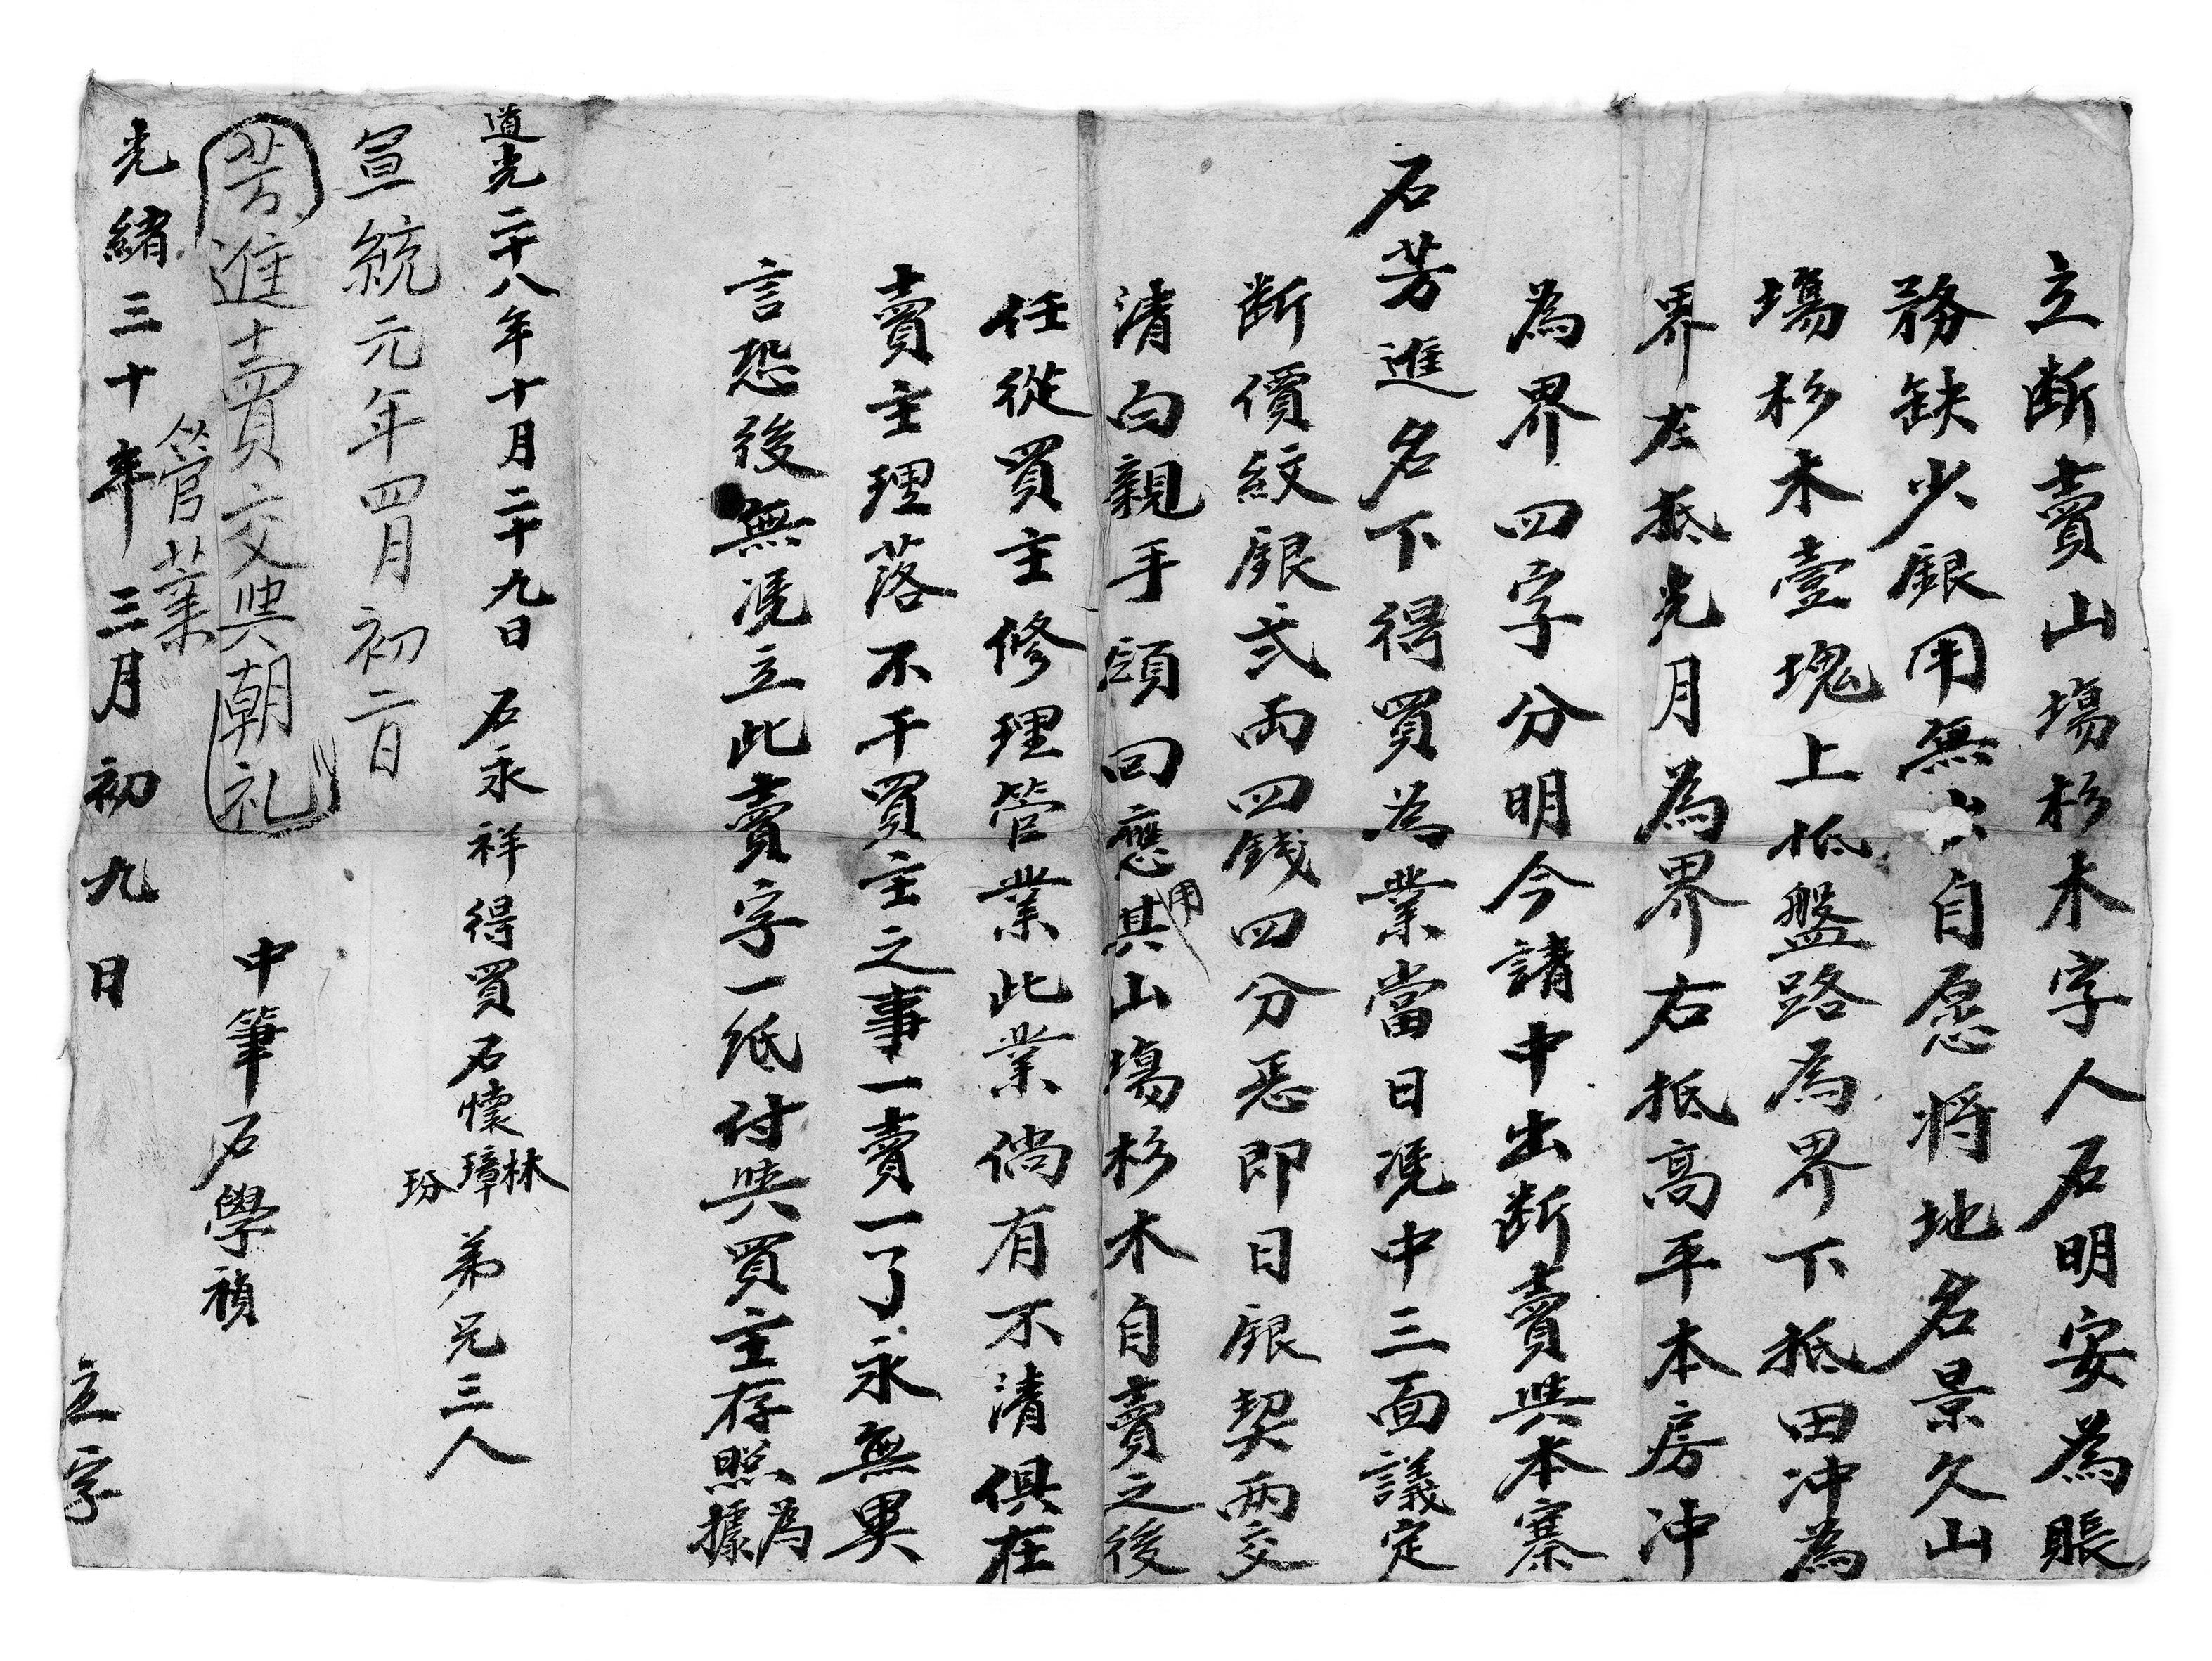 立断賣山塲杉木字人石明安為賬
務缺少銀用無出自愿将地名景久山
塲杉木壹塊上抵盤路為界下抵田冲為
界左抵光月為界右抵高平本房冲
為界四字分明今請中出断賣與本寨
石芳進名下得買為業當日凴中三面議定
断價紋銀弍両四錢四分悉即日銀契両交
清白親手領回應用其山塲杉木自賣之後
任從買主修理管業此業倘有不清俱在
賣主理落不干買主之事一賣一了永無異
言恐後無凴立此賣字一紙付與買主存照為據
道光二十八年十月二十九日 石永祥得買石懷林璋玢弟兄三人
宣統元年四月初二日
芳進賣交與朝礼管業
中筆石學禎
光緒三十年三月初九日 立字